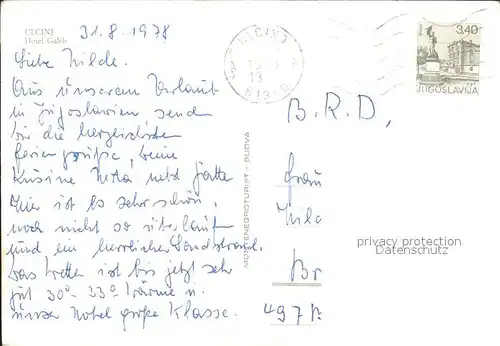 ULCINJ
Hotel Galeb
31.8.1978
Liebe Hilde.
Aus unserem Urlaub
in Jugoslawien, send
dir die herzlichsten
Feriengrüße, deine
Kusine Netta nebst Gatte
Hier ist es sehr schön,
noch nicht so überlaufen
und ein herrlicher Sandstrand.
Das Wetter ist bis jetzt sehr
gut 30°-33° Wärme u.
unser Hotel große Klasse.
MONTENEGROTURIST - BUDVA
ULCINJ
3,40
JUGOSLAVIJA
B.R.D,
Frau
Br
497
privacy protection
Datenschutz